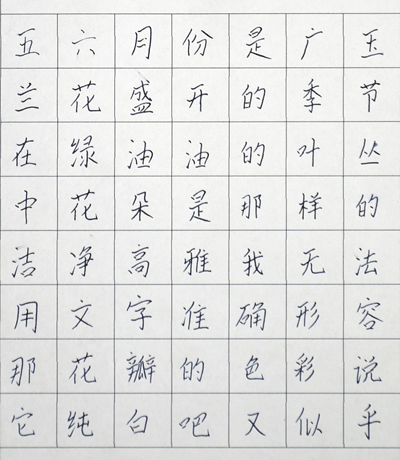 五六月份是广玉
兰花盛开的季节
在绿油油的叶丛
中花朵是那样的
洁净高雅我无法
用文字准确形容
那花瓣的色彩说
它纯白吧又似乎